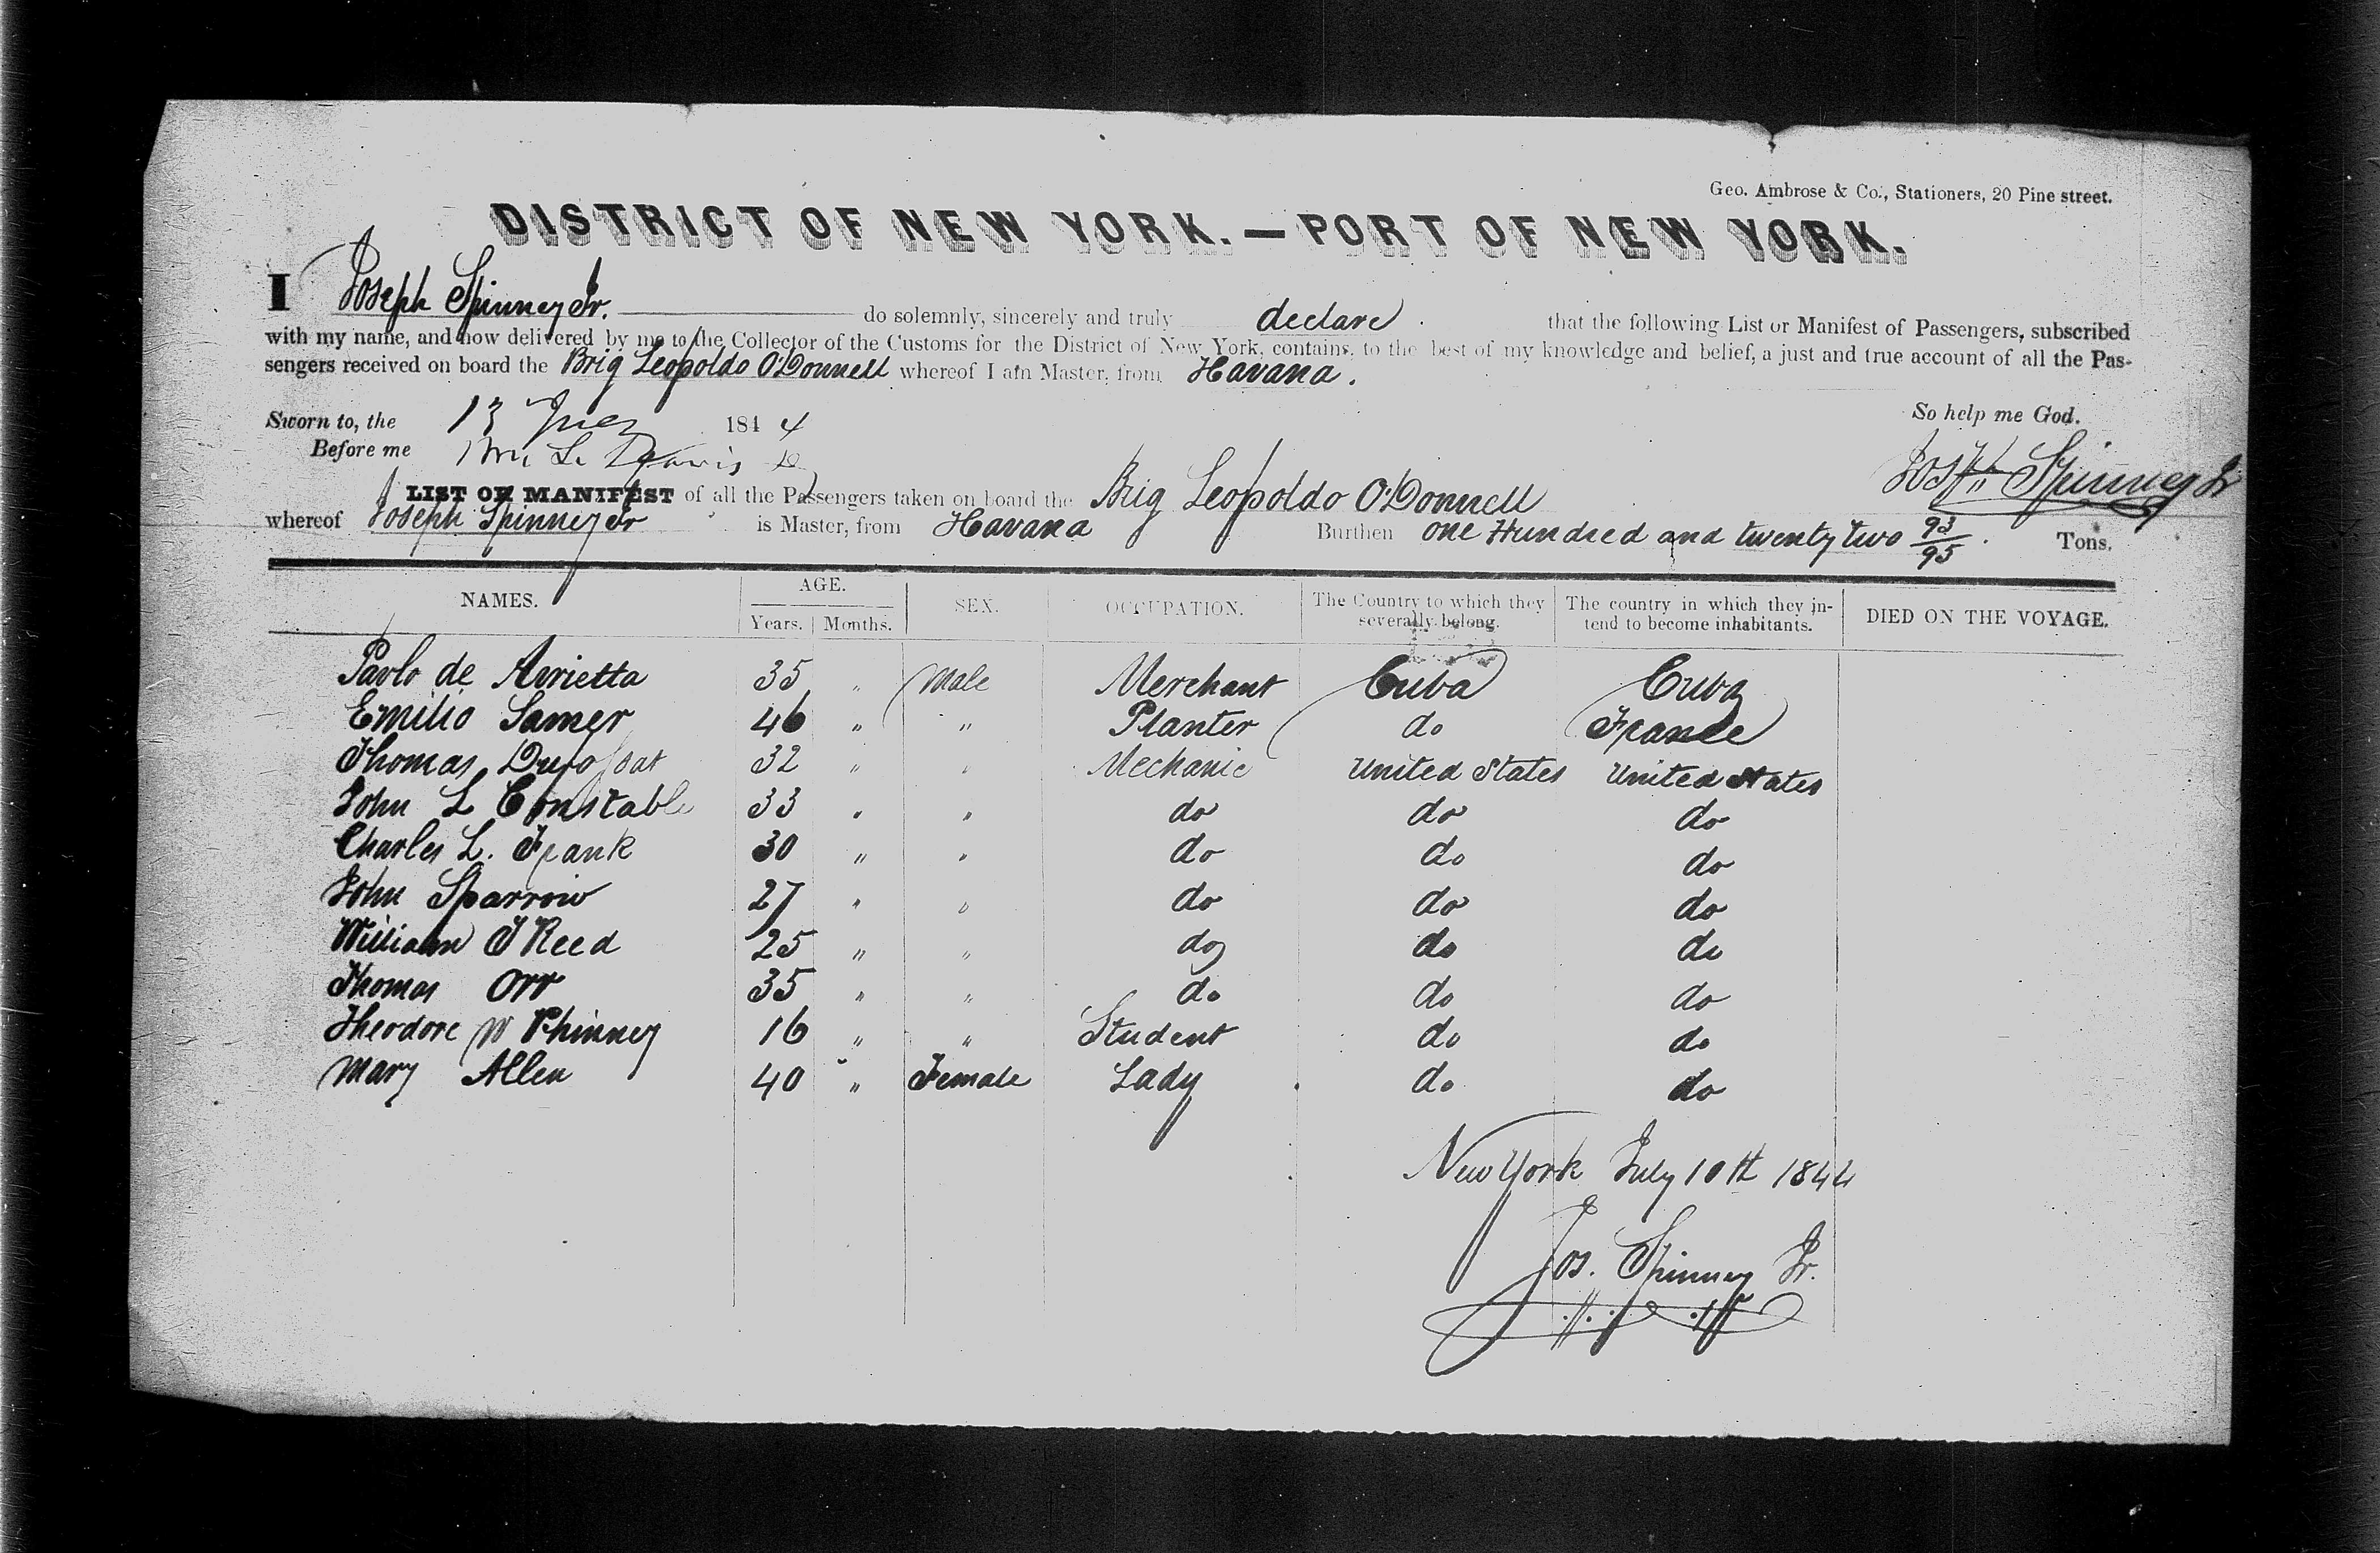 Geo. Ambrose & Co., Stationers, 20 Pine street.
DISTRICT OF NEW YORK.—PORT OF NEW YORK.
I Joseph Spinney Jr. do solemnly, sincerely and truly declare that the following List or Manifest of Passengers, subscribed
with my name, and now delivered by me to the Collector of the Customs for the District of New York, contains, to the best of my knowledge and belief, a just and true account of all the Pas-
sengers received on board the Brig Leopoldo O'Donnell whereof I am Master, from Havana.
So help me God.
Sworn to, the 13 1844
Before me
Josh Spinney Jr
LIST OR MANIFEST of all the Passengers taken on board the Brig Leopoldo O'Donnell
whereof Joseph Spinney Jr is Master, from Havana Burthen one Hundred and twenty two 93/95 Tons.
NAMES. AGE. Years. Months. SEX. OCCUPATION. The Country to which they severally belong. The country in which they intend to become inhabitants. DIED ON THE VOYAGE.
Pavlo de Arrietta 35 " Male Merchant Cuba Cuba
Emilio Samer 46 " " Planter do France
Thomas 32 " " Mechanic United States United States
John L Constable 33 " " do do do
Charles L. Frank 30 " " do do do
John Sparrow 27 " " do do do
William J Reed 25 " " do do do
Thomas Orr 35 " " do do do
Theodore W Phinney 16 " " Student do do
Mary Allen 40 " Female Lady do do
New York July 10th 1844
Jos. Spinney Jr.